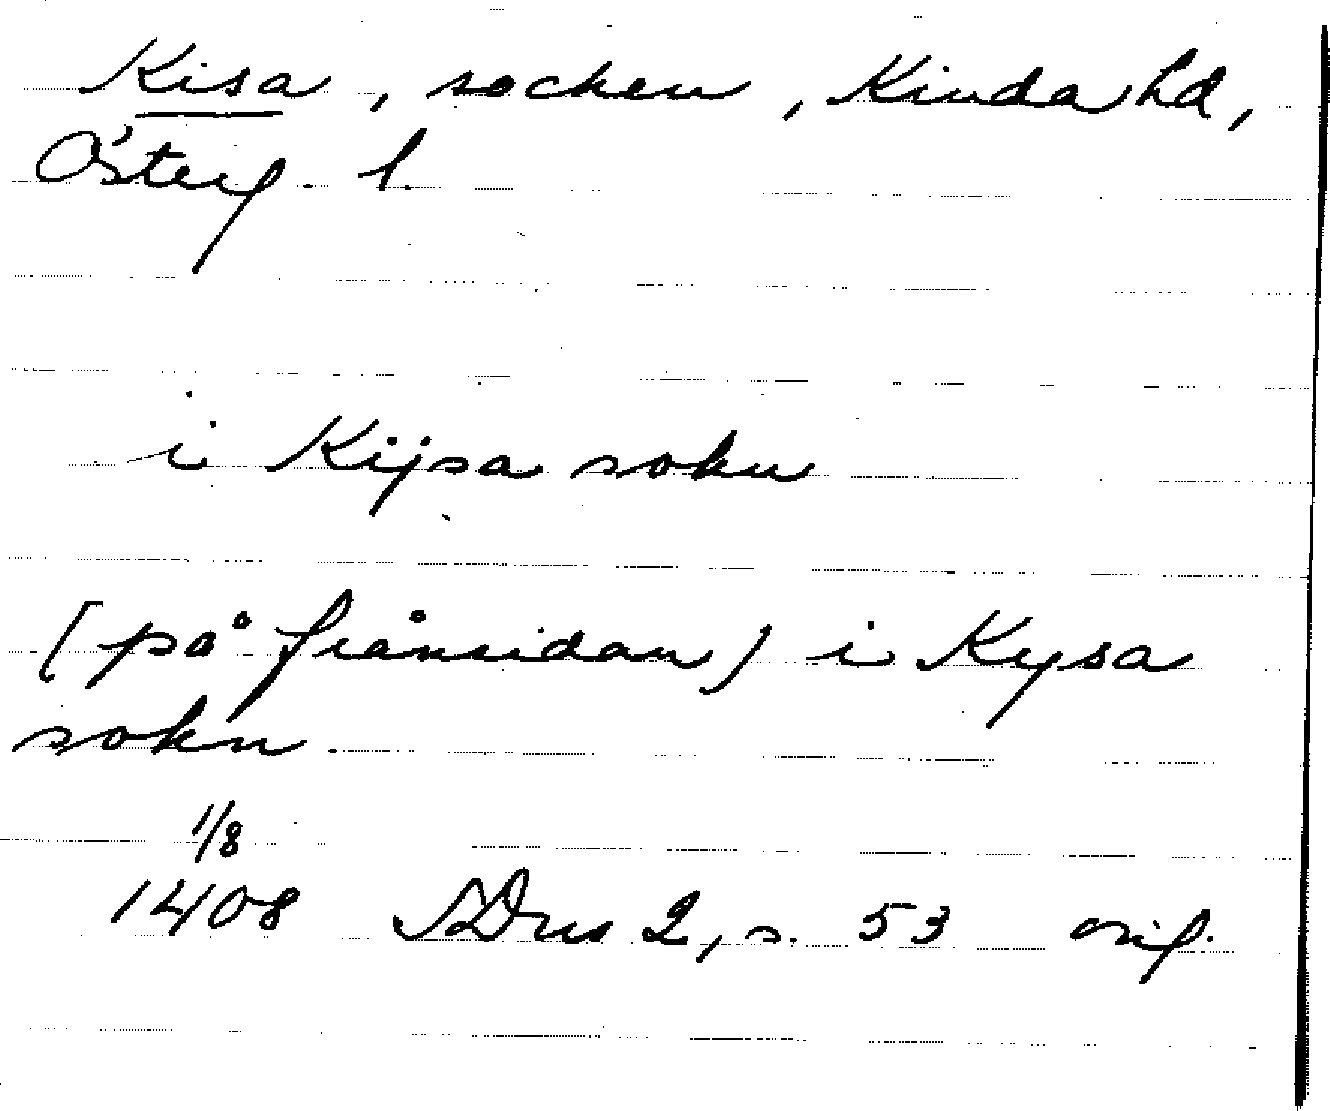 Kisa, socken, Kinda hd,
Österg. l.
i Kijsa sokn
(på frånsidan) i Kysa
sokn
1/8
1408 SDns 2, s. 53 orig.